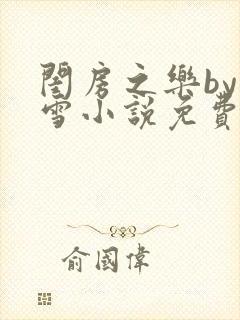 閨房之樂by
雪小說免費
俞國偉